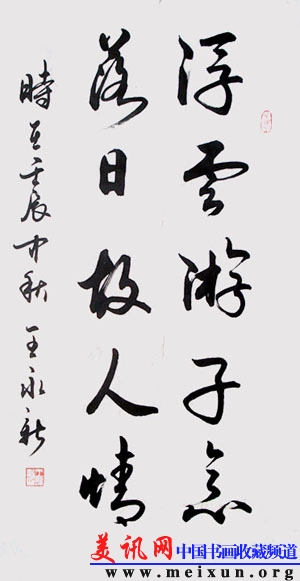 浮雲游子意
落日故人情
時在壬辰中秋 王永新
美讯网 中国书画收藏频道
www.meixun.org